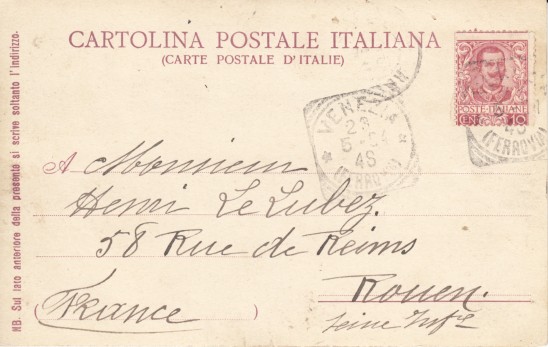 CARTOLINA POSTALE ITALIANA
(CARTE POSTALE D'ITALIE)
POSTE ITALIANE
CENT 10
VENEZIA
23
5
4S
(FERROVIA)
4S
(FERROVIA)
NB. Sul lato anteriore della presente si scrive soltanto l'indirizzo.
A Monsieur
Henri Le Lubez
58 Rue de Reims
Rouen.
(France)
Seine Infre